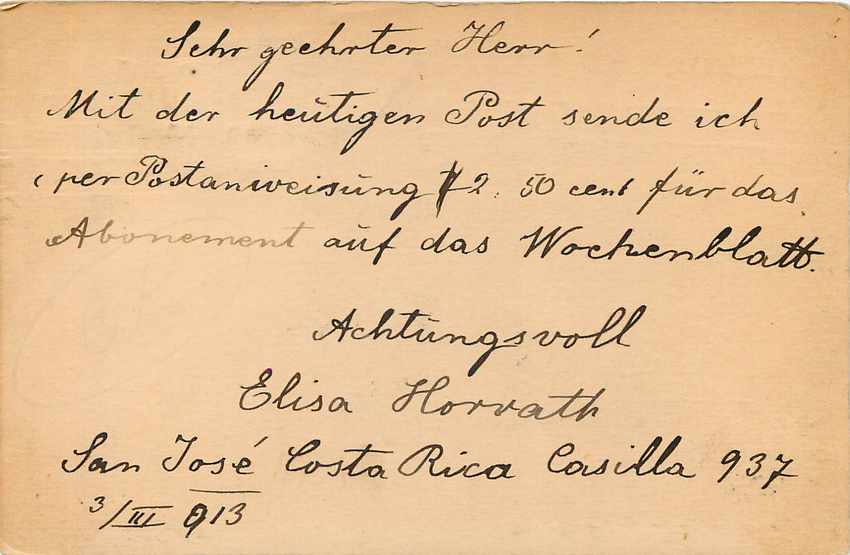 Sehr geehrter Herr!
Mit der heutigen Post sende ich
per Postanweisung $2.50 cent für das
Abonement auf das Wochenblatt.
Achtungsvoll
Elisa Horvath
San José Costa Rica Casilla 937
3/III 913